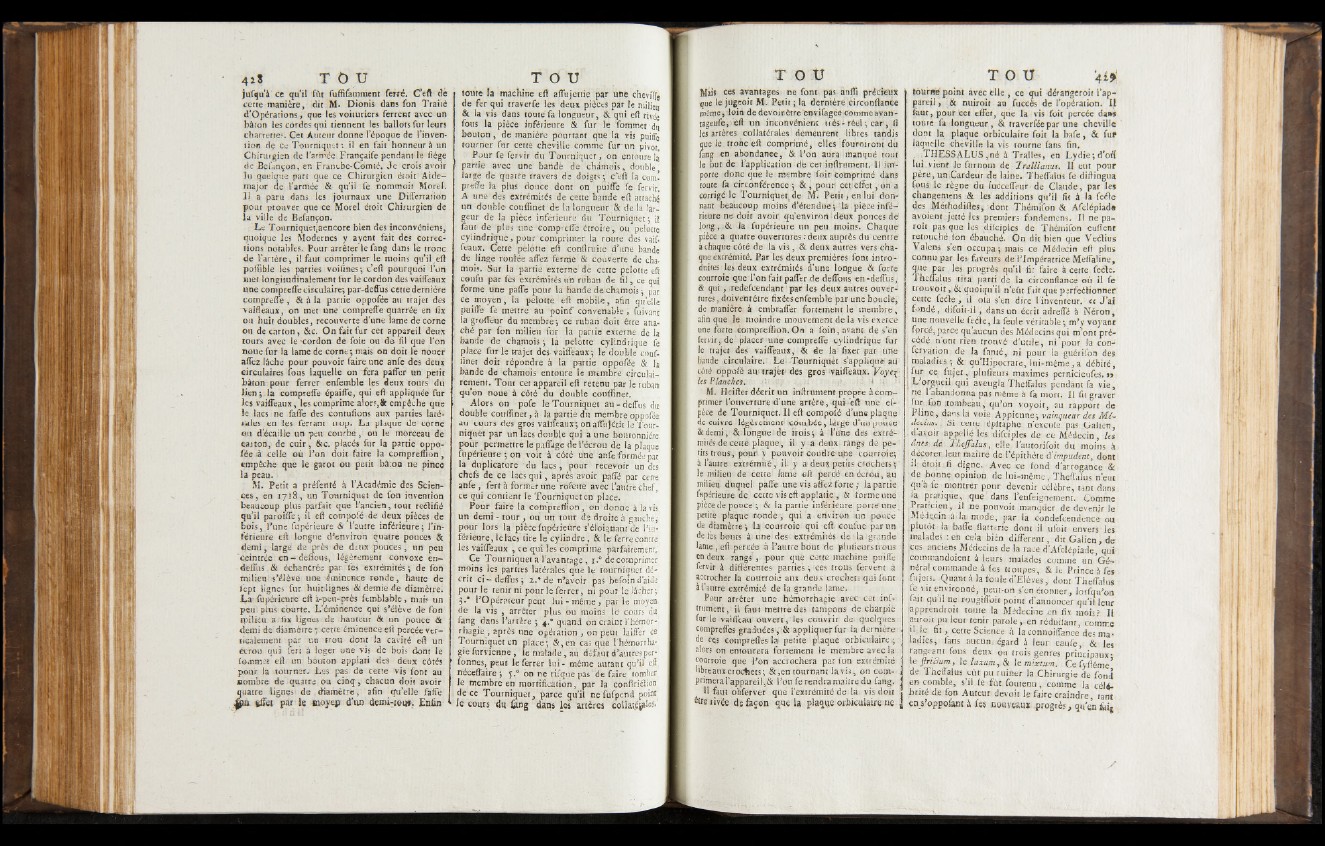 428 TOU TOU
jusqu'à ce qu'il fût suffisamment serré. C'est de
cette manière, dit M. Dionis dans son Traité
d'Opérations, que les voituriers serrent avec un
bâton les cordes qui tiennent les ballots sur leurs
charrettes. Cet Auteur donne l'époque de l'inven-
tion de ce Tourniquet : il en fait honneur à un
Chirurgien de l'armée Française pendant le siège
de Besançon, en Franche-Comté. Je crois avoir
lu quelque part que ce Chirurgien étoit Aide-
major de l'armée & qu'il se nommoit Morel.
Il a paru dans les journaux une Dissertation
pour prouver que ce Morel étoit Chirurgien de
la ville de Besançon.
Le Tourniquet, a encore bien des inconvéniens,
quoique les Modernes y ayent fait des correc-
tions notables. Pour arrêter le sang dans le tronc
de l'artère, il faut comprimer le moins qu'il est
possible les parties voisines ; c'est pourquoi l'on
met longitudinalement sur le cordon des vaisseaux
une compresse circulaire; par-dessus cette dernière
compresse, & à la partie opposée au trajet des
vaisseaux, on met une compresse quarrée en six
ou huit doubles, recouverte d'une lame de corne
ou de carton, &c. On fait sur cet appareil deux
tours avec le cordon de soie ou de fil que l'on
noue sur la lame de corne; mais on doit le nouer
assez lâche pour pouvoir faire une anse des deux
circulaires sous laquelle on fera passer un petit
bâton pour serrer ensemble les deux tours du
lien ; la compresse épaisse, qui est appliquée sur
les vaisseaux, les comprime alors, & empêche que
le lacs ne fasse des contusions aux parties laté-
rales en les serrant trop. La plaque de corne
ou d'écaille un peu courbe, ou le morceau de
carton, de cuir, &c. placés sur la partie oppo-
sée à celle où l'on doit faire la compression,
empêche que le garot ou petit bâton ne pince
la peau.
M. Petit a présenté à l'Académie des Scien-
ces, en 1718, un Tourniquet de son invention
beaucoup plus parfait que l'ancien, tout rectifié
qu'il paroisse ; il est composé de deux pièces de
bois, l'une supérieure & l'autre inférieure ; l'in-
férieure est longue d'environ quatre pouces &
demi, large de près de deux pouces, un peu
ceintrée en-dessous, légèrement convexe en-
dessus & échancrée par ses extrémités ; de son
milieu s'élève une éminence ronde, haute de
sept lignes sur huit lignes & demie de diamètre.
La supérieure est à-peu-près semblable, mais un
peu plus courte. L'éminence qui s'élève de son
milieu a six lignes de hauteur & un pouce &
demi de diamètre ; cette éminence est percée ver-
ticalement par un trou dont la cavité est un
écrou qui sert à loger une vis de bois dont le
sommet est un bouton applati des deux côtés
pour la tourner. Les pas de cette vis sont au
nombre de quatre ou cinq, chacun doit avoir
quatre lignes de diamètre, afin qu'elle fasse
son effet par le moyen d'un demi-tour. Enfin
toute la machine est assujettie par une cheville
de fer qui traverse les deux pièces par le milieu
& la vis dans toute sa longueur, & qui est rivée
sous la pièce inférieure & sur le sommet du
bouton, de manière pourtant que la vis puisse
tourner sur cette cheville comme sur un pivot.
Pour se servir du Tourniquet, on entoure la
partie avec une bande de chamois, double,
large de quatre travers de doigts ; c'est la com-
presse la plus douce dont on puisse se servir.
A une des extrémités de cette bande est attaché
un double coussinet de la longueur & de la lar-
geur de la pièce inférieure du Tourniquet ; il
faut de plus une compresse étroite, ou pelotte
cylindrique, pour comprimer la route des vais-
seaux. Cette pelotte est construite d'une bande
de linge roulée assez ferme & couverte de cha-
mois. Sur la partie externe de cette pelotte est
cousu par ses extrémités un ruban de fil, ce qui
forme une passe pour la bande de chamois ; par
ce moyen, la pelotte est mobile, afin qu'elle
puisse se mettre au point convenable, suivant
la grosseur du membre ; ce ruban doit être atta-
ché par son milieu sur la partie externe de la
bande de chamois ; la pelotte cylindrique se
place sur le trajet des vaisseaux ; le double cous-
sinet doit répondre à la partie opposée & la
bande de chamois entoure le membre circulai-
rement. Tout cet appareil est retenu par le ruban
qu'on noue à côté du double coussinet.
Alors on pose le Tourniquet au-dessus du
double coussinet, à la partie du membre opposée
au cours des gros vaisseaux ; on assujétit le Tour-
niquet par un lacs double qui a une boutonnière
pour permettre le passage de l'écrou de la plaque
supérieure ; on voit à côté une anse formée par
la duplicature du lacs, pour recevoir un des
chefs de ce lacs qui, après avoir passé par cette
anse, sert à former une rosette avec l'autre chef,
ce qui contient le Tourniquet en place.
Pour faire la compression, on donne à la vis
un demi-tour, ou un tour de droite à gauche ;
pour lors la pièce supérieure s'éloignant de l'in-
férieure, le lacs tire le cylindre, & le serre contre
les vaisseaux, ce qui les comprime parfaitement.
Ce Tourniquet a l'avantage, 1.° de comprimer
moins les parties latérales que le tourniquet dé-
crit ci-dessus ; 2.° de n'avoir pas besoin d'aide
pour le tenir ni pour le serrer, ni pour le lâcher ;
3.° l'Opérateur peut lui-même, par le moyen
de la vis, arrêter plus ou moins le cours du
sang dans l'artère ; 4.° quand on craint l'hémor-
rhagie, après une opération, on peut laisser ce
Tourniquet en place ; &, en cas que l'hémorrha-
gie survienne, le malade, au défaut d'autres per-
sonnes, peut le serrer lui-même autant qu'il est
nécessaire ; 5.° on ne risque pas de faire tomber
le membre en mortification, par la constriction
de ce Tourniquet, parce qu'il ne suspend point
le cours du sang dans les artères collatérales.
TOU TOU 429
Mais ces avantages ne sont pas aussi précieux
que le jugeoit M. Petit ; la dernière circonstance
même, loin de devoir être envisagée comme avan-
tageuse, est un inconvénient très-réel ; car, si
les artères collatérales demeurent libres tandis
que le tronc est comprimé, elles fourniront du
sang en abondance, & l'on aura manqué tout
le but de l'application de cet instrument. Il im-
porte donc que le membre soit comprimé dans
toute sa circonférence ; &, pour cet effet, on a
corrigé le Tourniquet de M. Petit, en lui don-
nant beaucoup moins d'étendue ; la pièce infé-
rieure ne doit avoir qu'environ deux pouces de
long, & la supérieure un peu moins. Chaque
pièce a quatre ouvertures : deux auprès du centre
à chaque côté de la vis, & deux autres vers cha-
que extrémité. Par les deux premières sont intro-
duites les deux extrémités d'une longue & forte
courroie que l'on fait passer de dessous en-dessus,
& qui, redescendant par les deux autres ouver-
tures, doivent être fixées ensemble par une boucle,
de manière à embrasser fortement le membre,
afin que le moindre mouvement de la vis exerce
une forte compression. On a soin, avant de s'en
servir, de placer une compresse cylindrique sur
le trajet des vaisseaux, & de la fixer par une
bande circulaire. Le Tourniquet s'applique au
côté opposé au trajet des gros vaisseaux. Voyez
les Planches.
M. Heister décrit un instrument propre à com-
primer l'ouverture d'une artère, qui est une es-
pèce de Tourniquet. Il est composé d'une plaque
de cuivre légèrement courbée, large d'un pouce
& demi, & longue de trois ; à l'une des extré-
mités de cette plaque, il y a deux rangs de pe-
tits trous, pour y pouvoir coudre une courroie ;
à l'autre extrémité, il y a deux petits crochets ;
le milieu de cette lame est percé en écrou, au
milieu duquel passe une vis assez forte ; la partie
supérieure de cette vis est applatie, & forme une
pièce de pouce ; & la partie inférieure porte une
petite plaque ronde, qui a environ un pouce
de diamètre ; la courroie qui est cousue par un
de ses bouts à une des extrémités de la grande
lame, est percée à l'autre bout de plusieurs trous
en deux rangs, pour que cette machine puisse
servir à différentes parties ; ces trous servent à
accrocher la courroie aux deux crochets qui sont
à l'autre extrémité de la grande lame.
Pour arrêter une hémorrhagie avec cet ins-
trument, il faut mettre des tampons de charpie
sur le vaisseau ouvert, les couvrir de quelques
compresses graduées, & appliquer sur la dernière
de ces compresses la petite plaque orbiculaire ;
alors on entourera fortement le membre avec la
courroie que l'on accrochera par son extrémité
libre aux crochets ; &, en tournant la vis, on com-
primera l'appareil, & l'on se rendra maître du sang.
Il faut observer que l'extrémité de la vis doit
être rivée de façon que la plaque orbiculaire ne
tourne point avec elle, ce qui dérangeroit l'ap-
pareil, & nuiroit au succès de l'opération. Il
faut, pour cet effet, que la vis soit percée dans
toute sa longueur, & traversée par une cheville
dont la plaque orbiculaire soit la base, & sur
laquelle cheville la vis tourne sans fin.
THESSALUS, né à Tralles, en Lydie ; d'où
lui vient le surnom de Trallianus. Il eut pour
père, un Cardeur de laine. Thessalus se distingua
sous le règne du successeur de Claude, par les
changemens & les additions qu'il fit à la secte
des Méthodistes, dont Thémison & Asclépiade
avoient jetté les premiers fondemens. Il ne pa-
roît pas que les disciples de Thémison eussent
retouché son ébauche. On dit bien que Vectius
Valens s'en occupa ; mais ce Médecin est plus
connu par les faveurs de l'Impératrice Messaline,
que par les progrès qu'il fit faire à cette secte.
Thessalus tira parti de la circonstance où il se
trouvoit, & quoiqu'il n'eût fait que perfectionner
cette secte, il osa s'en dire l'inventeur. « J'ai
fondé, disoit-il, dans un écrit adressé à Néron,
une nouvelle secte, la seule véritable ; m'y voyant
forcé, parce qu'aucun des Médecins qui m'ont pré-
cédé n'ont rien trouvé d'utile, ni pour la con-
servation de la santé, ni pour la guérison des
maladies ; & qu'Hipocrate, lui-même, a débité,
sur ce sujet, plusieurs maximes pernicieuses. »
L'orgueil qui aveugla Thessalus pendant sa vie,
ne l'abandonna pas même à sa mort. Il fit graver
sur son tombeau, qu'on voyoit, au rapport de
Pline, dans la voie Appienne ; vainqueur des Mé-
decins. Si cette épitaphe n'excuse pas Galien,
d'avoir appellé les disciples de ce Médecin, les
ânes de Thessalus, elle l'autorisoit du moins à
décorer leur maître de l'épithète d'impudent, dont
il étoit si digne. Avec ce fond d'arrogance &
de bonne opinion de lui-même, Thessalus n'eut
qu'à se montrer pour devenir célèbre, tant dans
la pratique, que dans l'enseignement. Comme
Praticien, il ne pouvoit manquer de devenir le
Médecin à la mode, par la condescendance ou
plutôt la basse flatterie dont il usoit envers les
malades : en cela bien différent, dit Galien, de
ces anciens Médecins de la race d'Asclépiade, qui
commandoient à leurs malades comme un Gé-
néral commande à ses troupes, & le Prince à ses
sujets. Quant à la foule d'Elèves, dont Thessalus
se vit environné, peut-on s'en étonner, lorsqu'on
sait qu'il ne rougissoit point d'annoncer qu'il leur
apprendroit toute la Médecine en six mois ? Il
auroit pu leur tenir parole, en réduisant, comme
il le fit, cette Science à la connoissance des ma-
ladies, sans aucun égard à leur cause, & les
rangeant sous deux ou trois genres principaux ;
le strictum, le laxum, & le mixtum. Ce système
de Thessalus eût pu ruiner la Chirurgie de fond
en comble, s'il se fût soutenu, comme la célé-
brité de son Auteur devoit le faire craindre, tant
en s'opposant à ses nouveaux progrès, qu'en fai-